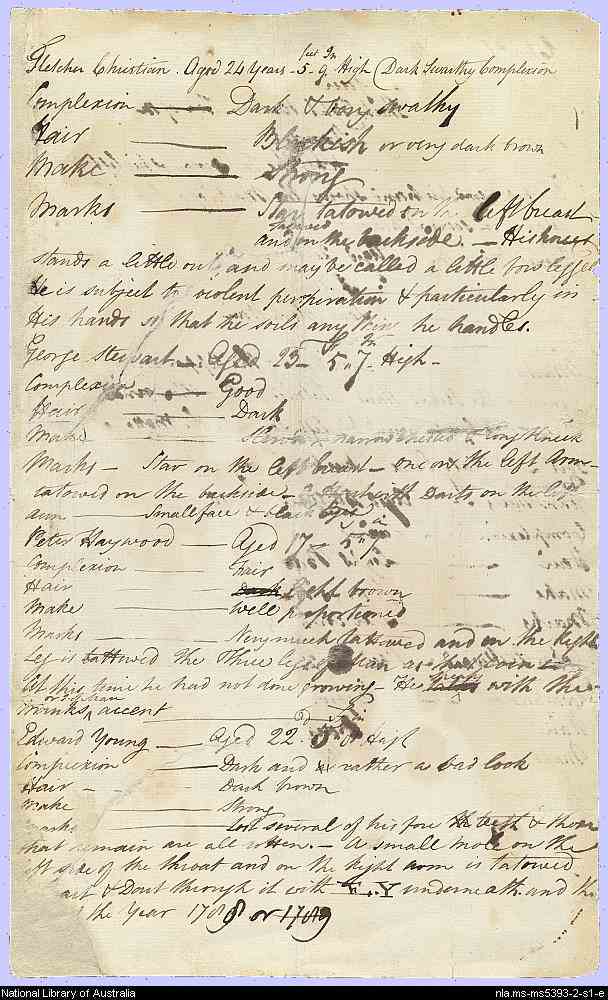 Fletcher Christian. Aged 24 Years - 5 feet 9 In High Dark Swarthy Complexion
Complexion —— Dark & very swathy
Hair —— Blackish or very dark brown
Make —— Strong
Marks —— Star tatowed on the left breast
and tatowed on the backside. — His knees
stands a little out and may be called a little bow legged
He is subject to violent perspiration & particularly in
His hands so that he soils any thing he handles.
George Stewart — Aged 23 — 5 F 7 In High —
Complexion —— Good
Hair —— Dark
Make —— narrow chested & long Neck
Marks — Star on the left breast — one on the left Arm —
tatowed on the backside — Darts on the left
arm —— Small face & black Eyes
Peter Haywood — Aged 17 — 5 7
Complexion —— Fair
Hair —— Dark Light brown
Make —— Well proportioned
Marks —— Very much tattowed and on the Right
Leg is tattowed the Three legs of Man as that coin —
At this time he had not done growing — He with the
accent
Edward Young —— Aged 22. 5 High
Complexion —— Dark and rather a bad look
Hair - - Dark brown
Make —— Strong
Marks —— Lost several of his fore teeth & those
that remain are all rotten. — A small mole on the
left side of the throat and on the Right arm is tatowed
& Dart through it with E.Y underneath and the
the Year 1788 or 1789
National Library of Australia
nla.ms-ms5393-2-s1-e